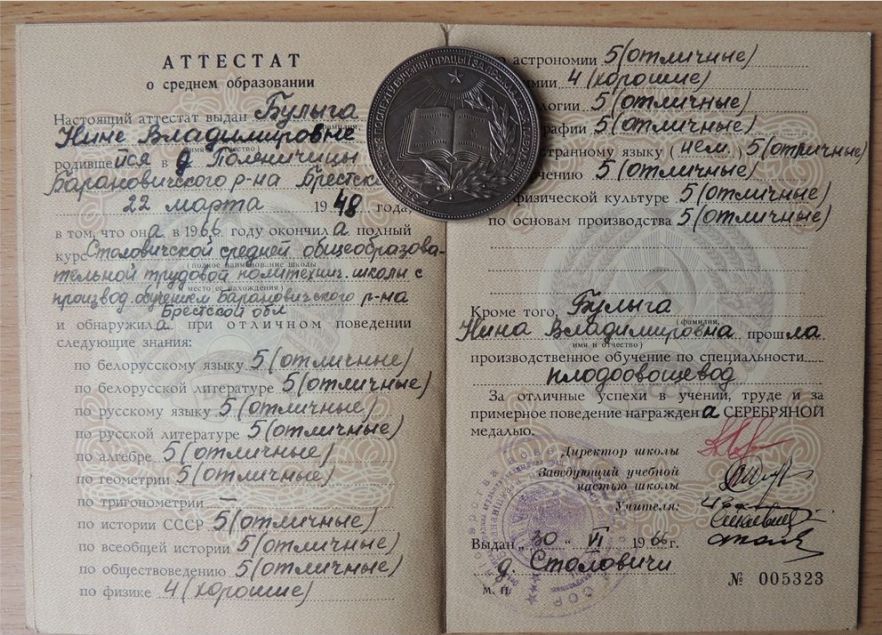 АТТЕСТАТ
о среднем образовании
Настоящий аттестат выдан Булыга
Нине Владимировне
родившейся в д. Поляничицы
Барановичского р-на Брестск
22 марта 1948 года
в том, что она в 1966 году окончила полный
курс Столовичской средней общеобразова-
(полное наименование школы
тельной трудовой политехнич. школы с
место её нахождения)
производ. обучением Барановичского р-на
Брестской обл
и обнаружила при отличном поведении
следующие знания:
по белорусскому языку 5 (отличные)
по белорусской литературе 5 (отличные)
по русскому языку 5 (отличные)
по русской литературе 5 (отличные)
по алгебре 5 (отличные)
по геометрии 5 (отличные)
по тригонометрии —
по истории СССР 5 (отличные)
по всеобщей истории 5 (отличные)
по обществоведению 5 (отличные)
по физике 4 (хорошие)
астрономии 5 (отличные)
мии 4 (хорошие)
логии 5 (отличные)
графии 5 (отличные)
странному языку (нем.) 5 (отличные)
чению 5 (отличные)
физической культуре 5 (отличные)
по основам производства 5 (отличные)
Кроме того, Булыга
(фамилия,
Нина Владимировна прошла
имя и отчество)
производственное обучение по специальности
плодоовощевод
За отличные успехи в учении, труде и за
примерное поведение награждена СЕРЕБРЯНОЙ
медалью.
Директор школы
Заведующий учебной
частью школы
Учителя:
Выдан „30" VI 1966 г.
д. Столовичи
М. П.
№ 005323